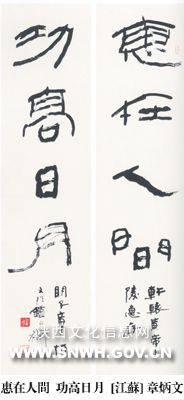 惠在人間
功高日月
軒轅黄帝
陕西文化信息网
WWW.SNWH.GOV.CN
惠在人間 功高日月 [江蘇] 章炳文